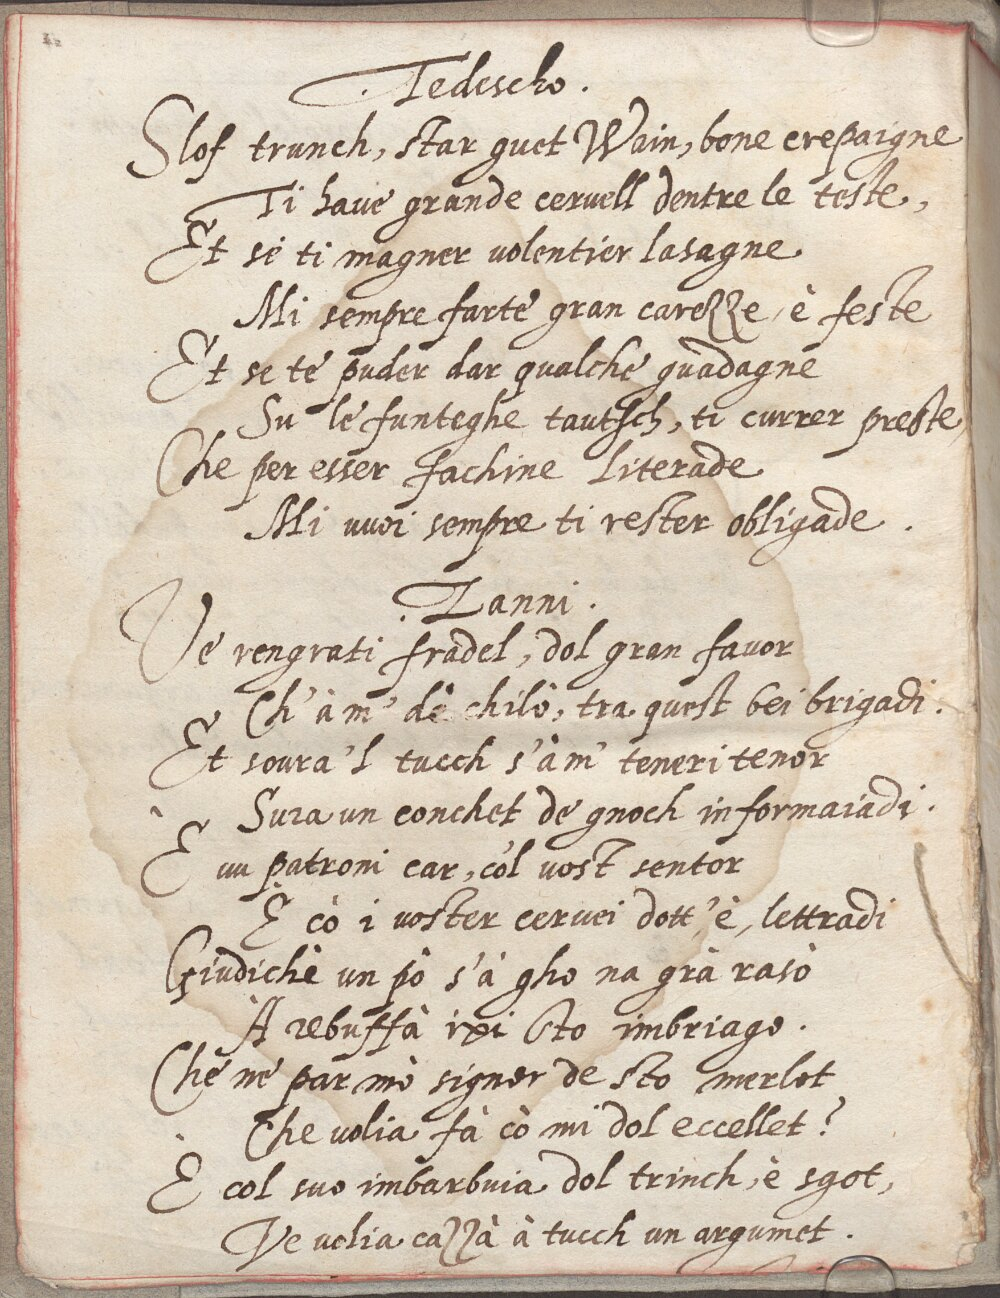 Tedescho.
Slof trunch, star guet Wain, bone crepaigne
Ti havé grande cervell dentre le teste,
Et sé ti magner volentier lasagne
Mi sempre farté gran carezze, è feste
Et se té puder dar qualché guadagne
Su lé funteghe tautsch, ti currer preste,
Che per esser fachine literade
Mi vuoi sempre ti rester obligade.
Zanni.
Vé rengrati fradel, dol gran favor
Ch'à m' dè chilò, tra quest bei brigadi.
Et soura'l tucch s'à m' teneri tenor
Sura un conchet dé gnoch informaiadi.
È vu patroni car, col vost sentor
È cò i voster cervei dott', è, lettradi
Giudichè un pò s'à gho na grà rasò
À rebuffà ixi sto imbriagò.
Ché mé par mò signor de sto merlot
Che volia fà cò mi dol eccellet?
È col suo imbarbuia dol trinch, è sgot,
Ve volia cazzà à tucch un argumet.